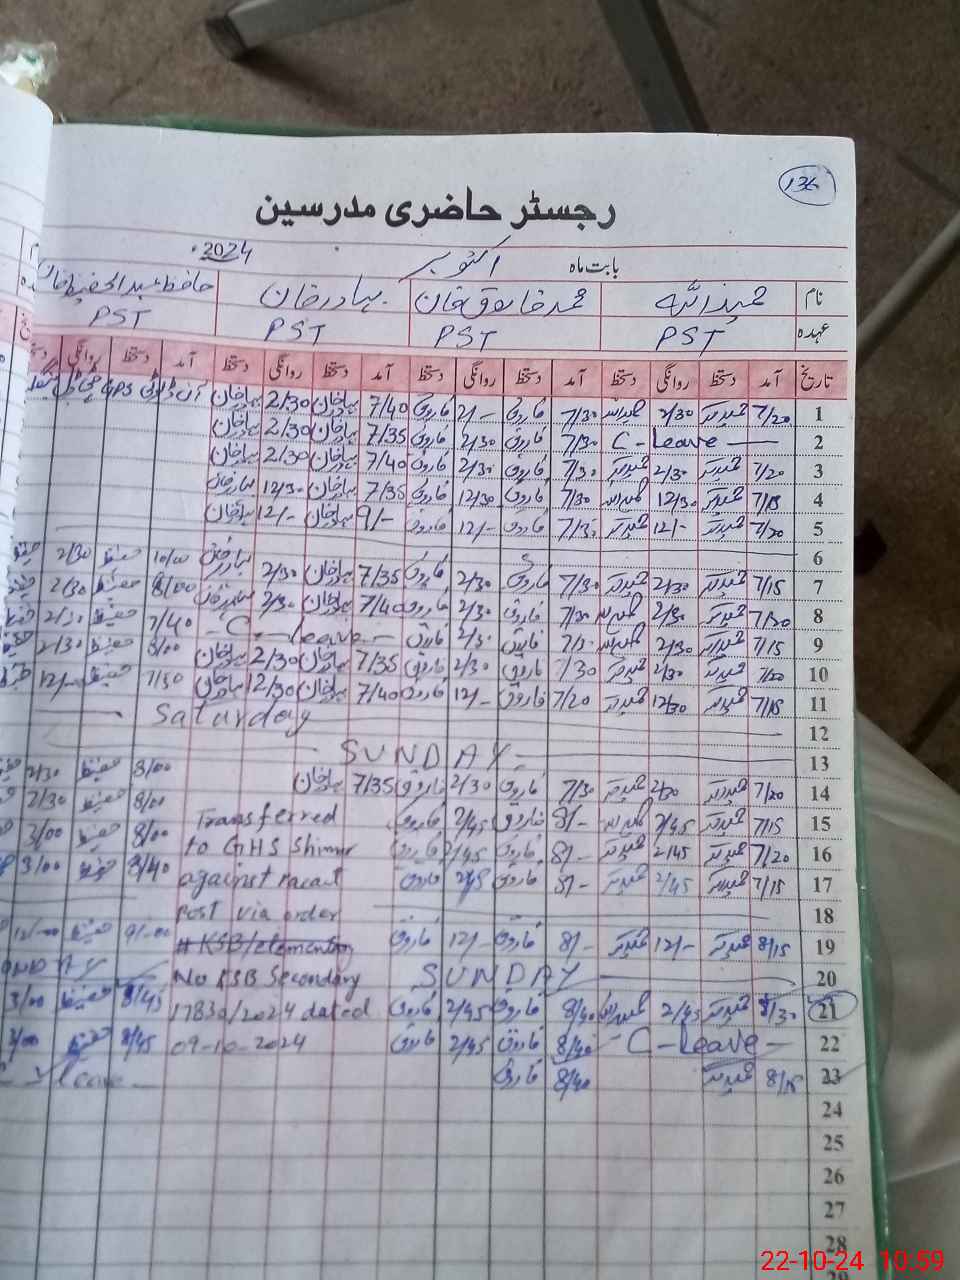 136
رجسٹر حاضری مدرسین
بابت ماہ اکتوبر 2024
نام حمیداللہ محمد فاروق خان بہادر خان حافظ عبدالحفیظ خان
عہدہ PST PST PST PST
تاریخ آمد دستخط روانگی دستخط آمد دستخط روانگی دستخط آمد دستخط روانگی دستخط آمد دستخط روانگی
1 7/20 حمیداللہ 2/30 حمیداللہ 7/30 فاروق 2/- فاروق 7/40 بہادرخان 2/30 بہادرخان
2 C-Leave 7/30 فاروق 2/30 فاروق 7/35 بہادرخان 2/30 بہادرخان
3 7/20 حمیداللہ 2/30 حمیداللہ 7/30 فاروق 2/30 فاروق 7/40 بہادرخان 2/30 بہادرخان
4 7/15 حمیداللہ 12/30 حمیداللہ 7/30 فاروق 12/30 فاروق 7/35 بہادرخان 12/30 بہادرخان
5 7/20 حمیداللہ 12/- حمیداللہ 7/30 فاروق 12/- فاروق 9/- بہادرخان 12/- بہادرخان
6
7 7/15 حمیداللہ 2/30 حمیداللہ 7/30 فاروق 2/30 فاروق 7/35 بہادرخان 2/30 بہادرخان 10/00 حفیظ 2/30 حفیظ
8 7/20 حمیداللہ 2/30 حمیداللہ 7/20 فاروق 2/30 فاروق 7/40 بہادرخان 2/30 بہادرخان 8/00 حفیظ 2/30 حفیظ
9 7/15 حمیداللہ 2/30 حمیداللہ 7/30 فاروق 2/30 فاروق C-leave 7/40 حفیظ 2/30 حفیظ
10 7/20 حمیداللہ 2/30 حمیداللہ 7/30 فاروق 2/30 فاروق 7/35 بہادرخان 2/30 بہادرخان 8/00 حفیظ 2/30 حفیظ
11 7/15 حمیداللہ 12/30 حمیداللہ 7/20 فاروق 12/- فاروق 7/40 بہادرخان 12/30 بہادرخان 7/50 حفیظ
12 Saturday
13 SUNDAY
14 7/20 حمیداللہ 2/30 حمیداللہ 7/30 فاروق 2/30 فاروق 7/35 بہادرخان 8/00 حفیظ 2/30
15 7/15 حمیداللہ 2/45 حمیداللہ 8/- فاروق 2/45 فاروق Transferred 8/00 حفیظ 2/30
16 7/20 حمیداللہ 2/45 حمیداللہ 8/- فاروق 2/45 فاروق to GHS Shinwr 8/00 حفیظ 3/00
17 7/15 حمیداللہ 2/45 حمیداللہ 8/- فاروق 2/45 فاروق against vacant 8/40 حفیظ 3/00
18 post via order
19 8/15 حمیداللہ 12/- حمیداللہ 8/- فاروق 12/- فاروق # KSB/elementry 9/00 حفیظ 12/00
20 SUNDAY No KSB Secondary
21 8/30 حمیداللہ 2/45 حمیداللہ 8/40 فاروق 2/45 فاروق 17830/2024 dated 8/45 حفیظ 3/00
22 C-Leave 8/40 فاروق 2/45 فاروق 09-10-2024 8/45 حفیظ 3/00
23 8/15 حمیداللہ 8/40 فاروق leave
24
25
26
27
28
29
22-10-24 10:59